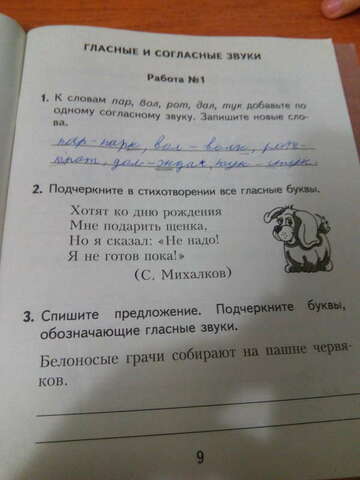 ГЛАСНЫЕ И СОГЛАСНЫЕ ЗВУКИ
Работа №1
1. К словам пар, вол, рот, дал, тук добавьте по
одному согласному звуку. Запишите новые сло-
ва.
пар-парк, вол - волк, рот-
крот, дал - ждал, тук - стук.
2. Подчеркните в стихотворении все гласные буквы.
Хотят ко дню рождения
Мне подарить щенка,
Но я сказал: «Не надо!
Я не готов пока!»
(С. Михалков)
3. Спишите предложение. Подчеркните буквы,
обозначающие гласные звуки.
Белоносые грачи собирают на пашне червя-
ков.
9